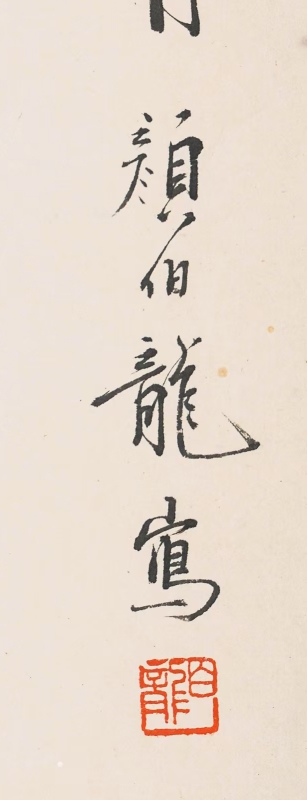 顔伯龍寫
伯龍